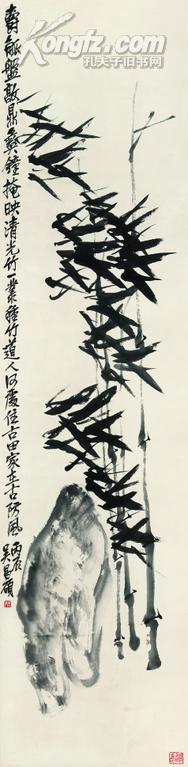 Kongfz.com
孔夫子旧书网
壽觚盤敦鼎彝鐘掩映清光竹一叢種竹道人何處住古田家在古防風
丙辰
吳昌碩